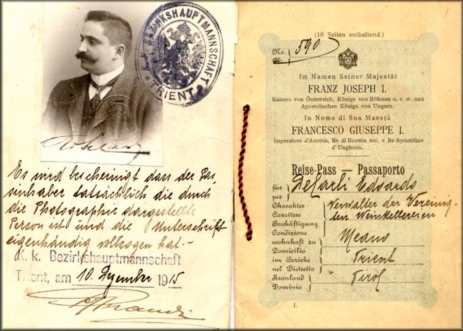 K. K. BEZIRKSHAUPTMANNSCHAFT
TRIENT
Es wird bescheinigt dass der Pas-
sinhaber tatsächlich die durch
die Photographie dargestellte
Person ist und die Unterschrift
eigenhändig vollzogen hat.-
K. k. Bezirkshauptmannschaft
Trient, am 10. Dezember 1915
(16 Seiten enthaltend.)
Nr. 590
Im Namen Seiner Majestät
FRANZ JOSEPH I.
Kaisers von Österreich, Königs von Böhmen u. s. w. und
Apostolischen Königs von Ungarn.
In Nome di Sua Maestà
FRANCESCO GIUSEPPE I.
Imperatore d'Austria, Re di Boemia ecc. e Re Apostolico
d'Ungheria.
Reise-Pass — Passaporto
für
per Edoardo
Charakter Verwalter der Vereinig-
Carattere ten Weinkellereien
Beschäftigung
Condizione
wohnhaft zu Meano
Domicilio
im Bezirke Trient
nel Distretto
Kronland Tirol
Dominio
1.